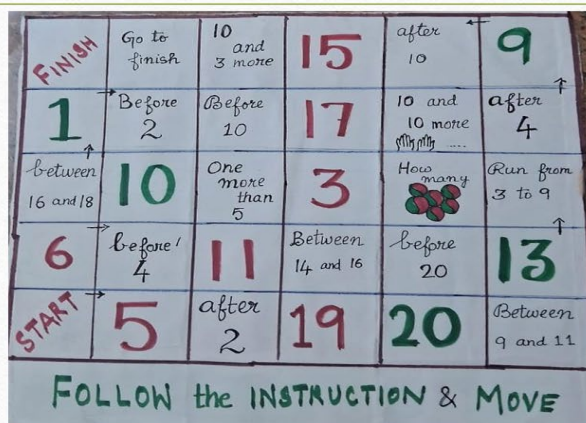 FINISH
Go to
finish
10
and
3 more
15
after
10
9
1
Before
2
Before
10
17
10 and
10 more
.....
after
4
between
16 and 18
10
One
more
than
5
3
How
many
Run from
3 to 9
6
before
4
11
Between
14 and 16
before
20
13
START
5
after
2
19
20
Between
9 and 11
FOLLOW the INSTRUCTION & MOVE